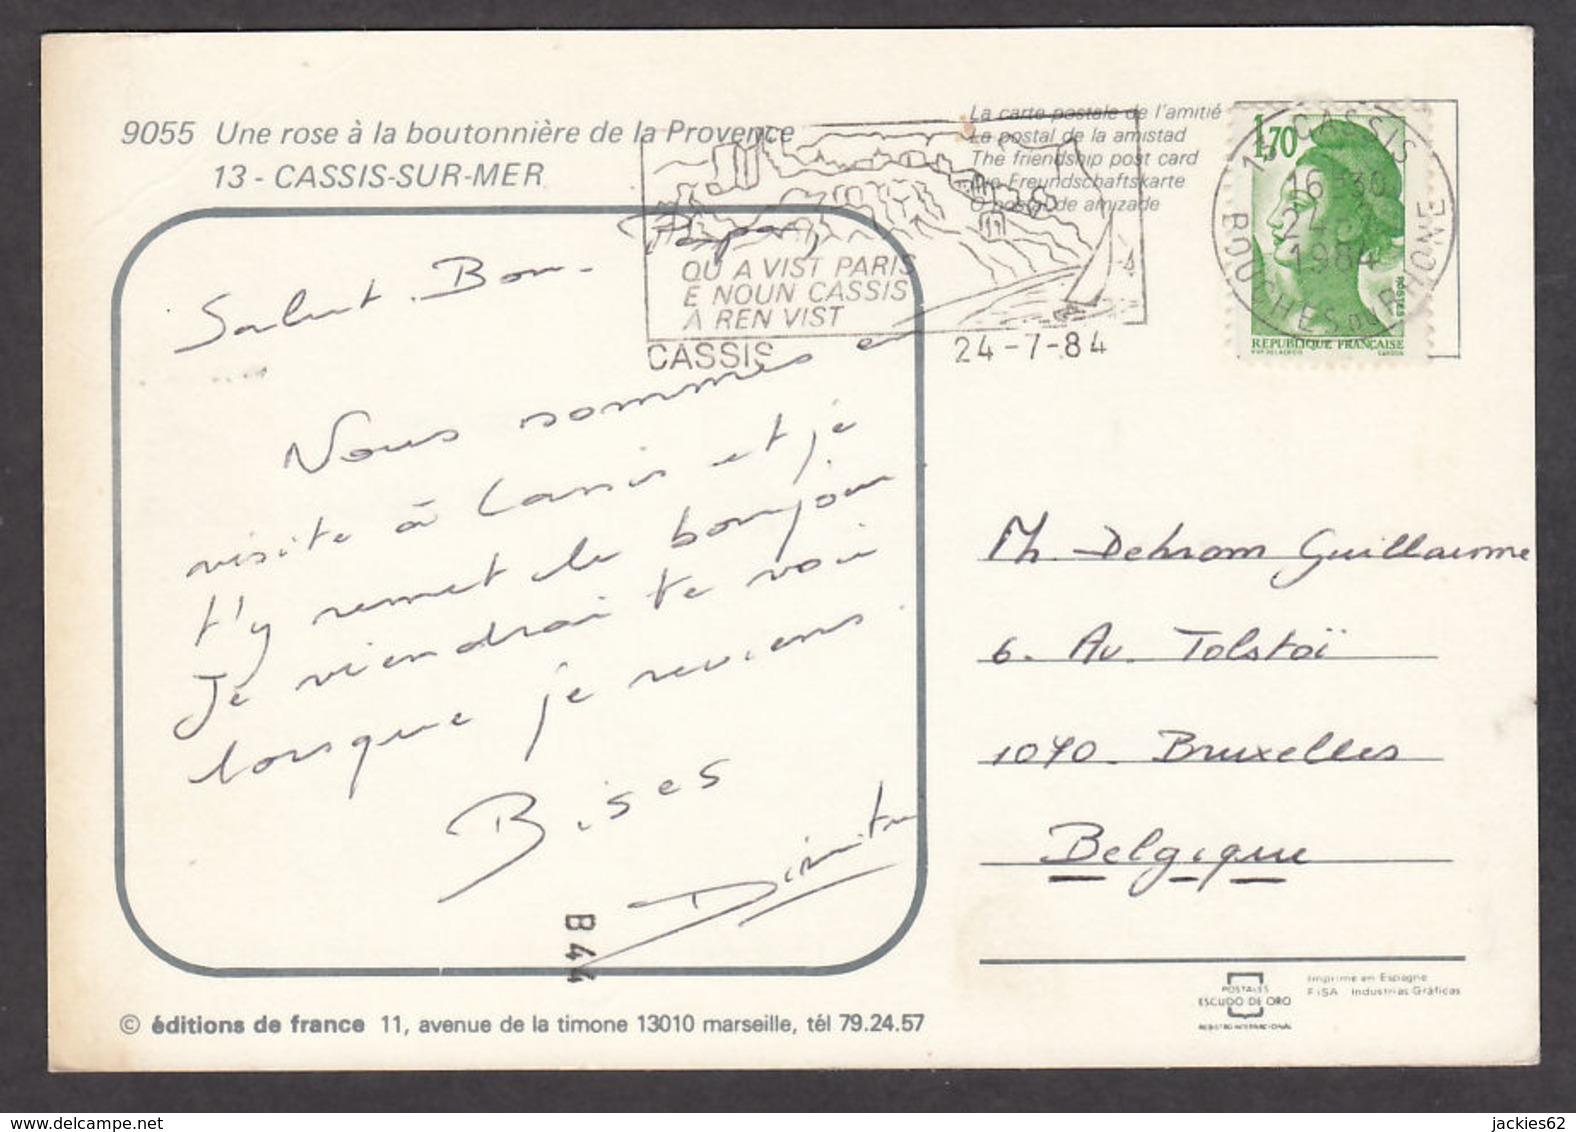 9055 Une rose à la boutonnière de la Provence
13 - CASSIS-SUR-MER
La carte postale de l'amitié
La postal de la amistad
The friendship post card
Die Freundschaftskarte
O postal de amizade
1,70
RÉPUBLIQUE FRANÇAISE
POSTES
13 CASSIS
16H30
24-7
1984
BOUCHES DU RHONE
QU A VIST PARIS
E NOUN CASSIS
A REN VIST
CASSIS
24-7-84
Salut Bon-Papa,
Nous sommes en
visite à Cassis et je
t'y remet le bonjour
Je viendrai te voir
lorsque je reviens.
Bises
Dimitri
B 44
Mh. Dehrom Guillaume
6. Av. Tolstoï
1070. Bruxelles
Belgique
© éditions de france 11, avenue de la timone 13010 marseille, tél 79.24.57
POSTALES
ESCUDO DE ORO
REGISTRO INTERNACIONAL
Imprime en Espagne
FISA Industrias Gráficas
jackies62